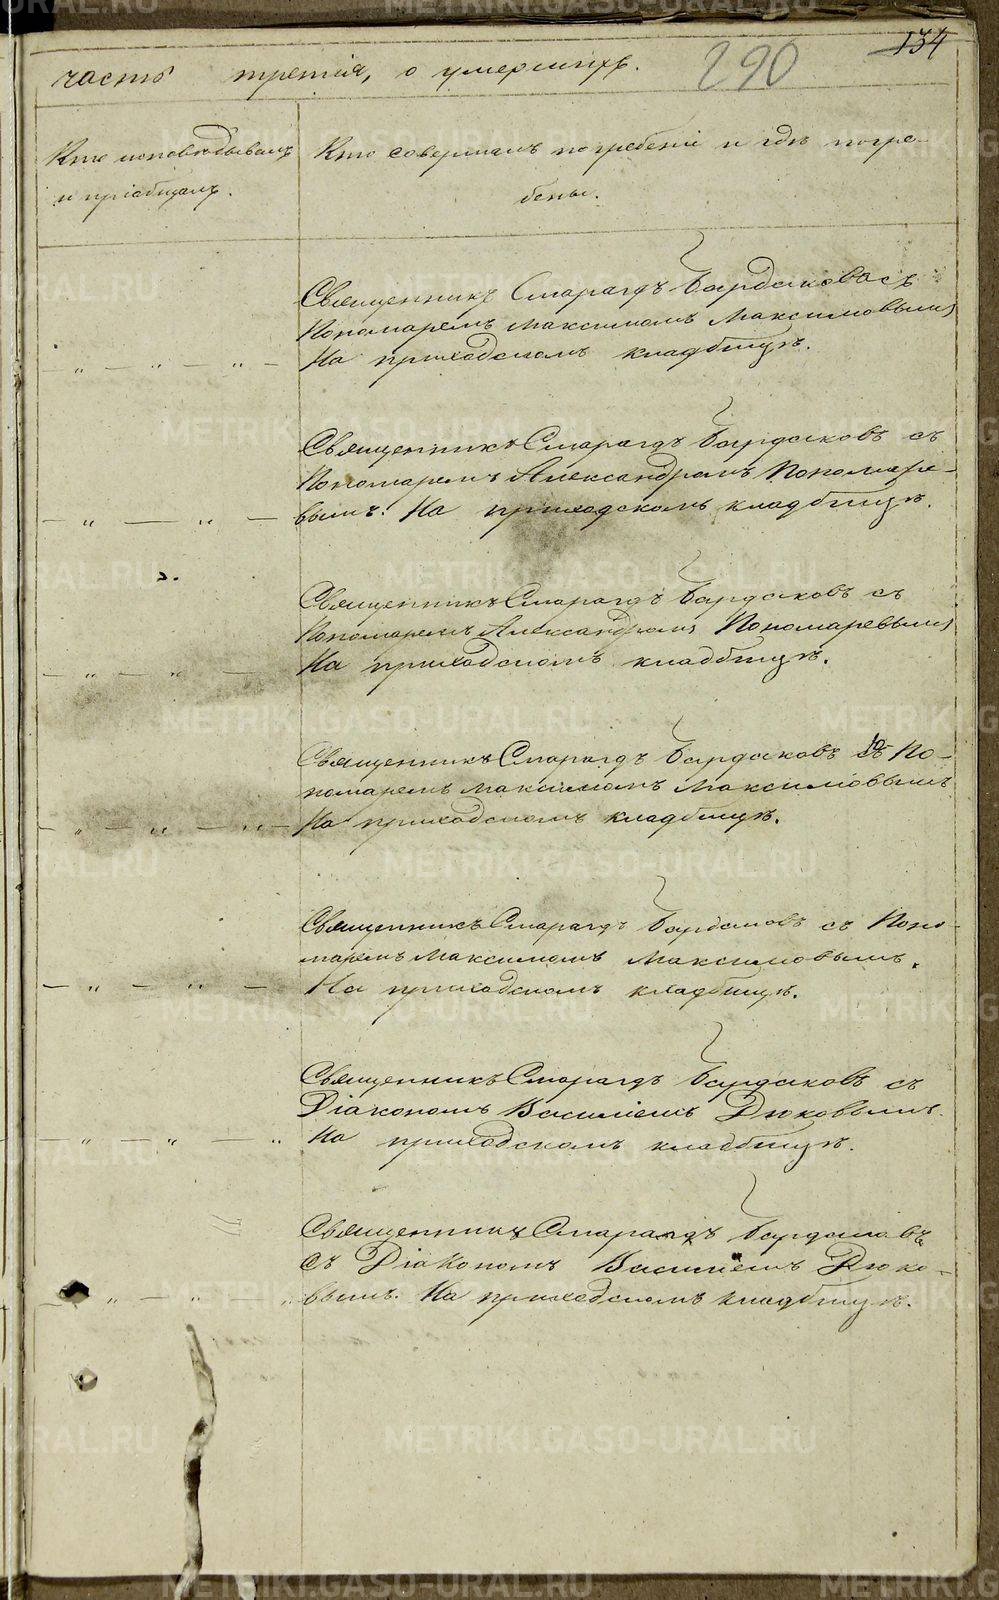 134
290
часть третія, о умершихъ.
Кто исповѣдывалъ
и пріобщалъ.
Кто совершалъ погребеніе и гдѣ погре-
бены.
Священникъ Смарагдъ Бардаковъ съ
Пономаремъ Максимомъ Максимовымъ
На приходскомъ кладбищѣ.
Священникъ Смарагдъ Бардаковъ съ
Пономаремъ Александромъ Пономаре-
вымъ. На приходскомъ кладбищѣ.
Священникъ Смарагдъ Бардаковъ съ
Пономаремъ Александромъ Пономаревымъ
На приходскомъ кладбищѣ.
Священникъ Смарагдъ Бардаковъ съ По-
номаремъ Максимомъ Максимовымъ
На приходскомъ кладбищѣ.
Священникъ Смарагдъ Бардаковъ съ Поно-
маремъ Максимомъ Максимовымъ.
На приходскомъ кладбищѣ.
Священникъ Смарагдъ Бардаковъ съ
Діакономъ Василіемъ Дюковымъ.
На приходскомъ кладбищѣ.
Священникъ Смарагдъ Бардаковъ
съ Діакономъ Василіемъ Дюко-
вымъ. На приходскомъ кладбищѣ.
METRIKI.GASO-URAL.RU